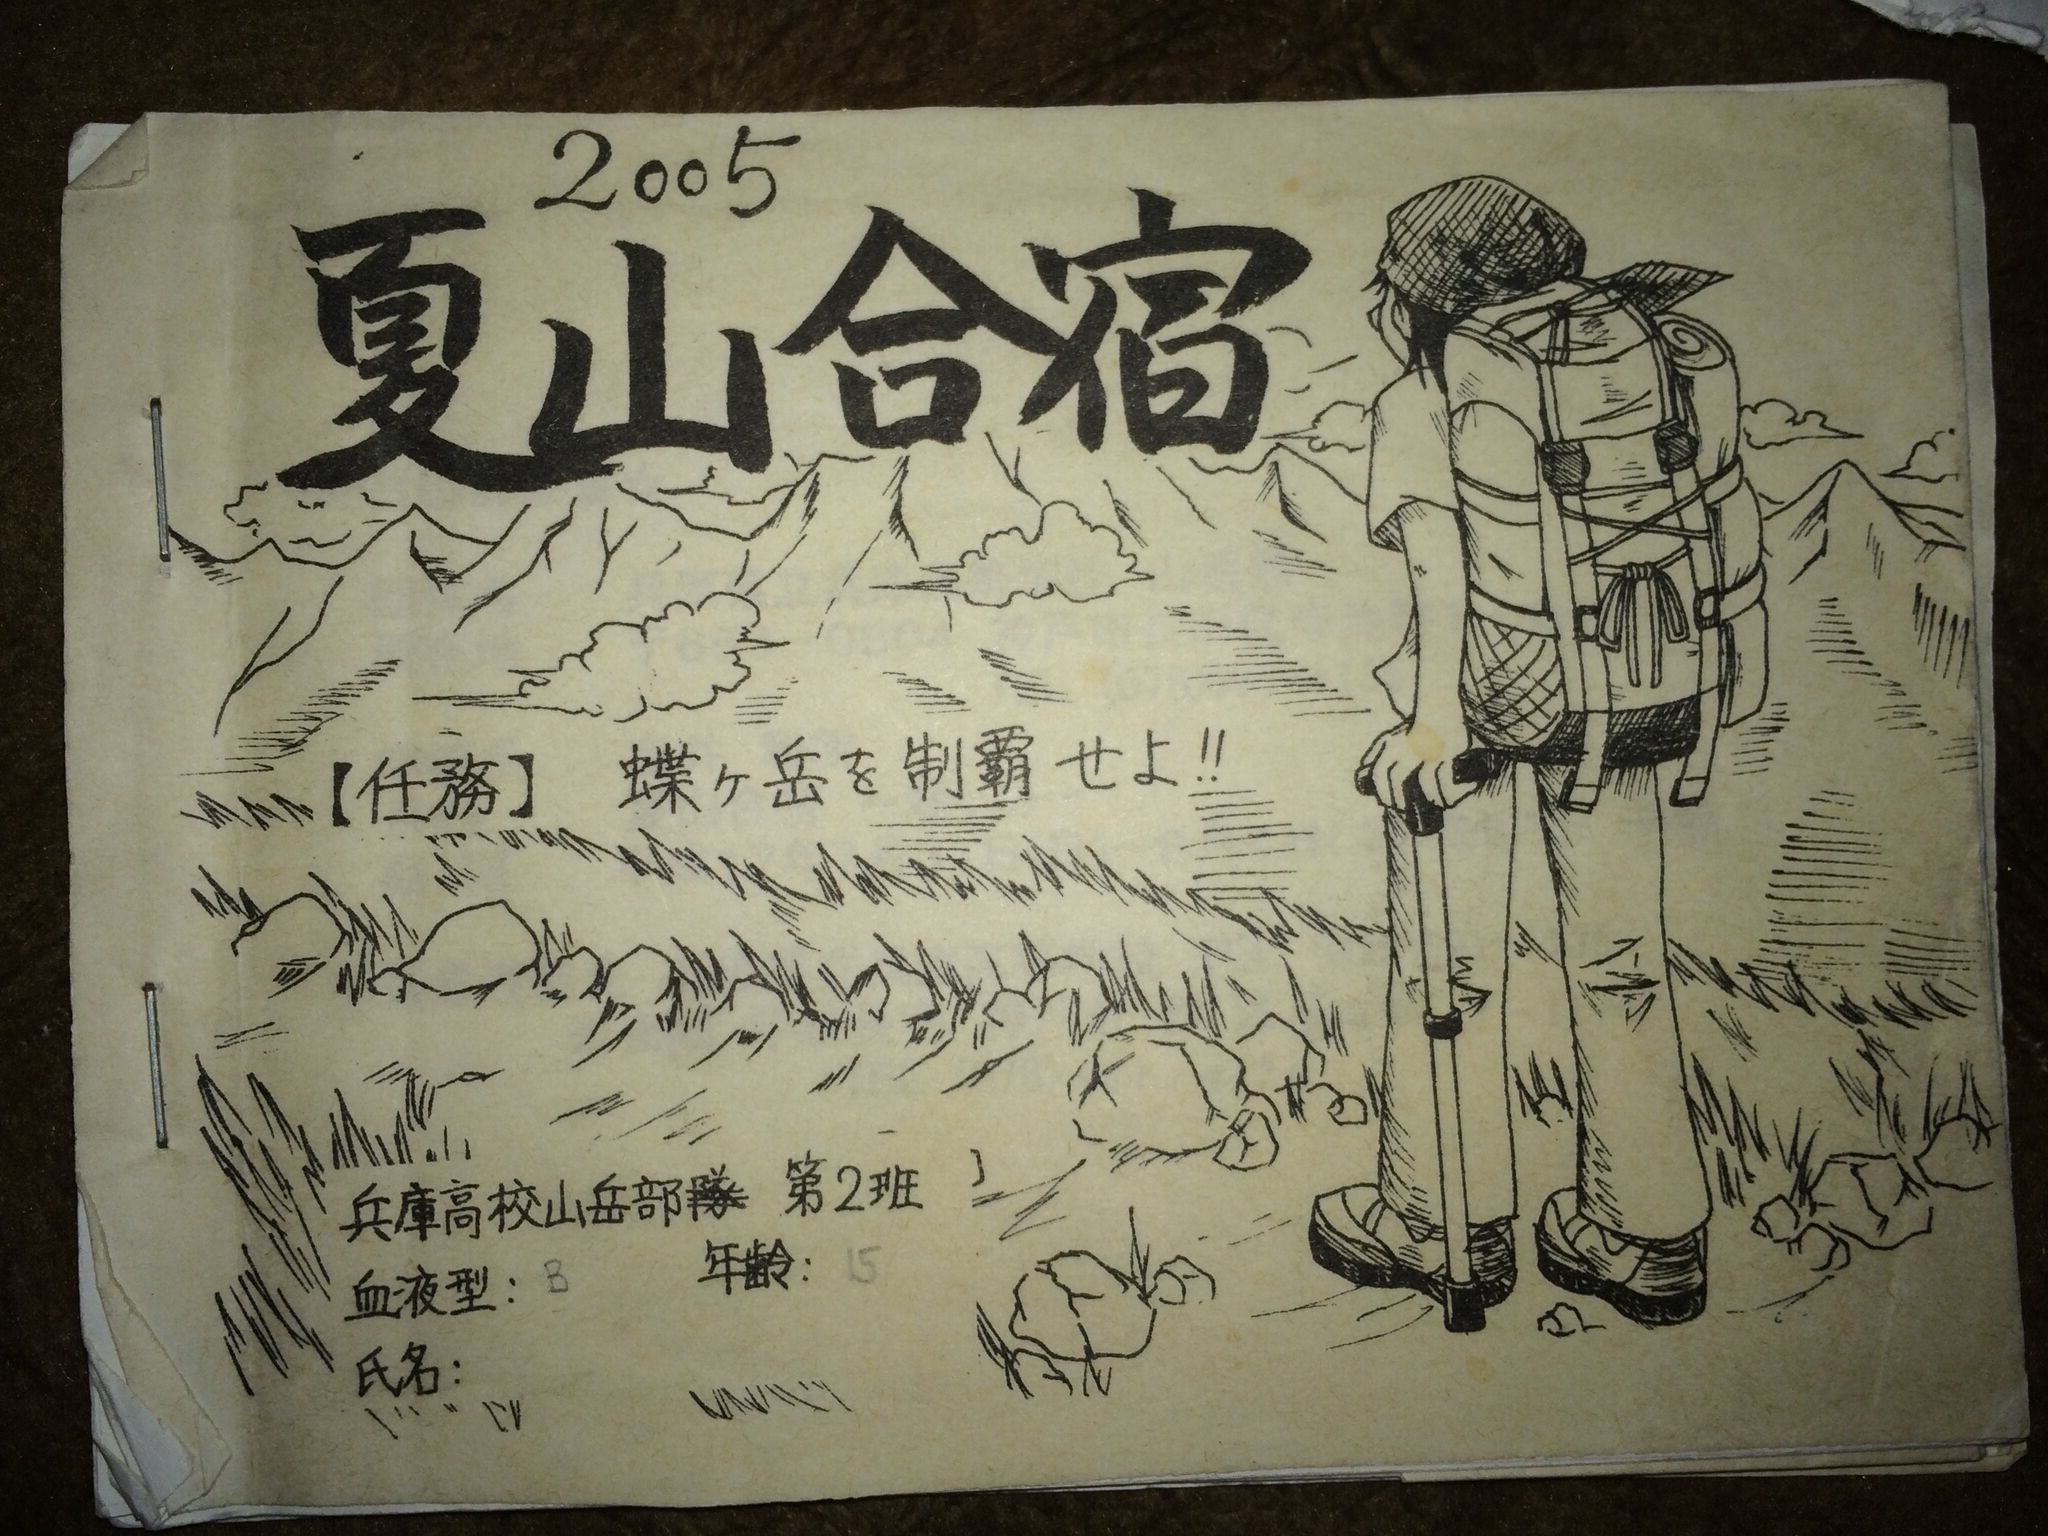 2005
夏山合宿
【任務】 蝶ヶ岳を制覇せよ!!
兵庫高校山岳部隊 第2班
血液型: B 年齢: 15
氏名: